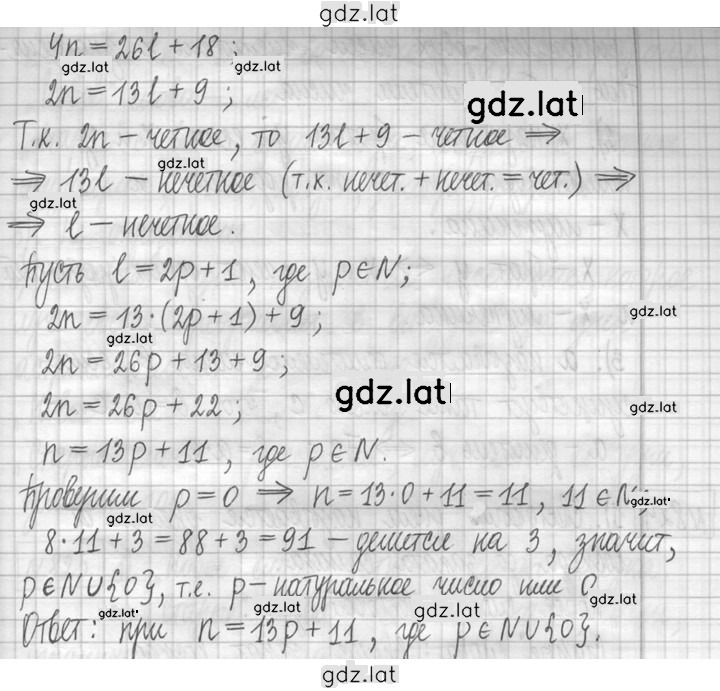 gdz.lat
4n = 26l + 18 ;
gdz.lat gdz.lat
2n = 13l + 9 ;
gdz.lat
Т.к. 2n – четное, то 13l + 9 – четное ⇒
gdz.lat
⇒ 13l – нечетное (т.к. нечет. + нечет. = чет.) ⇒
gdz.lat
⇒ l – нечетное.
Пусть l = 2p + 1, где p ∈ N;
2n = 13·(2p + 1) + 9 ;
gdz.lat
gdz.lat
2n = 26p + 13 + 9 ;
gdz.lat
2n = 26p + 22 ;
gdz.lat
n = 13p + 11, где p ∈ N.
Проверим p = 0 ⇒ n = 13·0 + 11 = 11, 11 ∈ N;
gdz.lat
gdz.lat
8·11 + 3 = 88 + 3 = 91 – делится на 3, значит,
p ∈ N∪{0}, т.е. p – натуральное число или 0.
gdz.lat gdz.lat gdz.lat gdz.lat
Ответ: при n = 13p + 11, где p ∈ N∪{0}.
gdz.lat